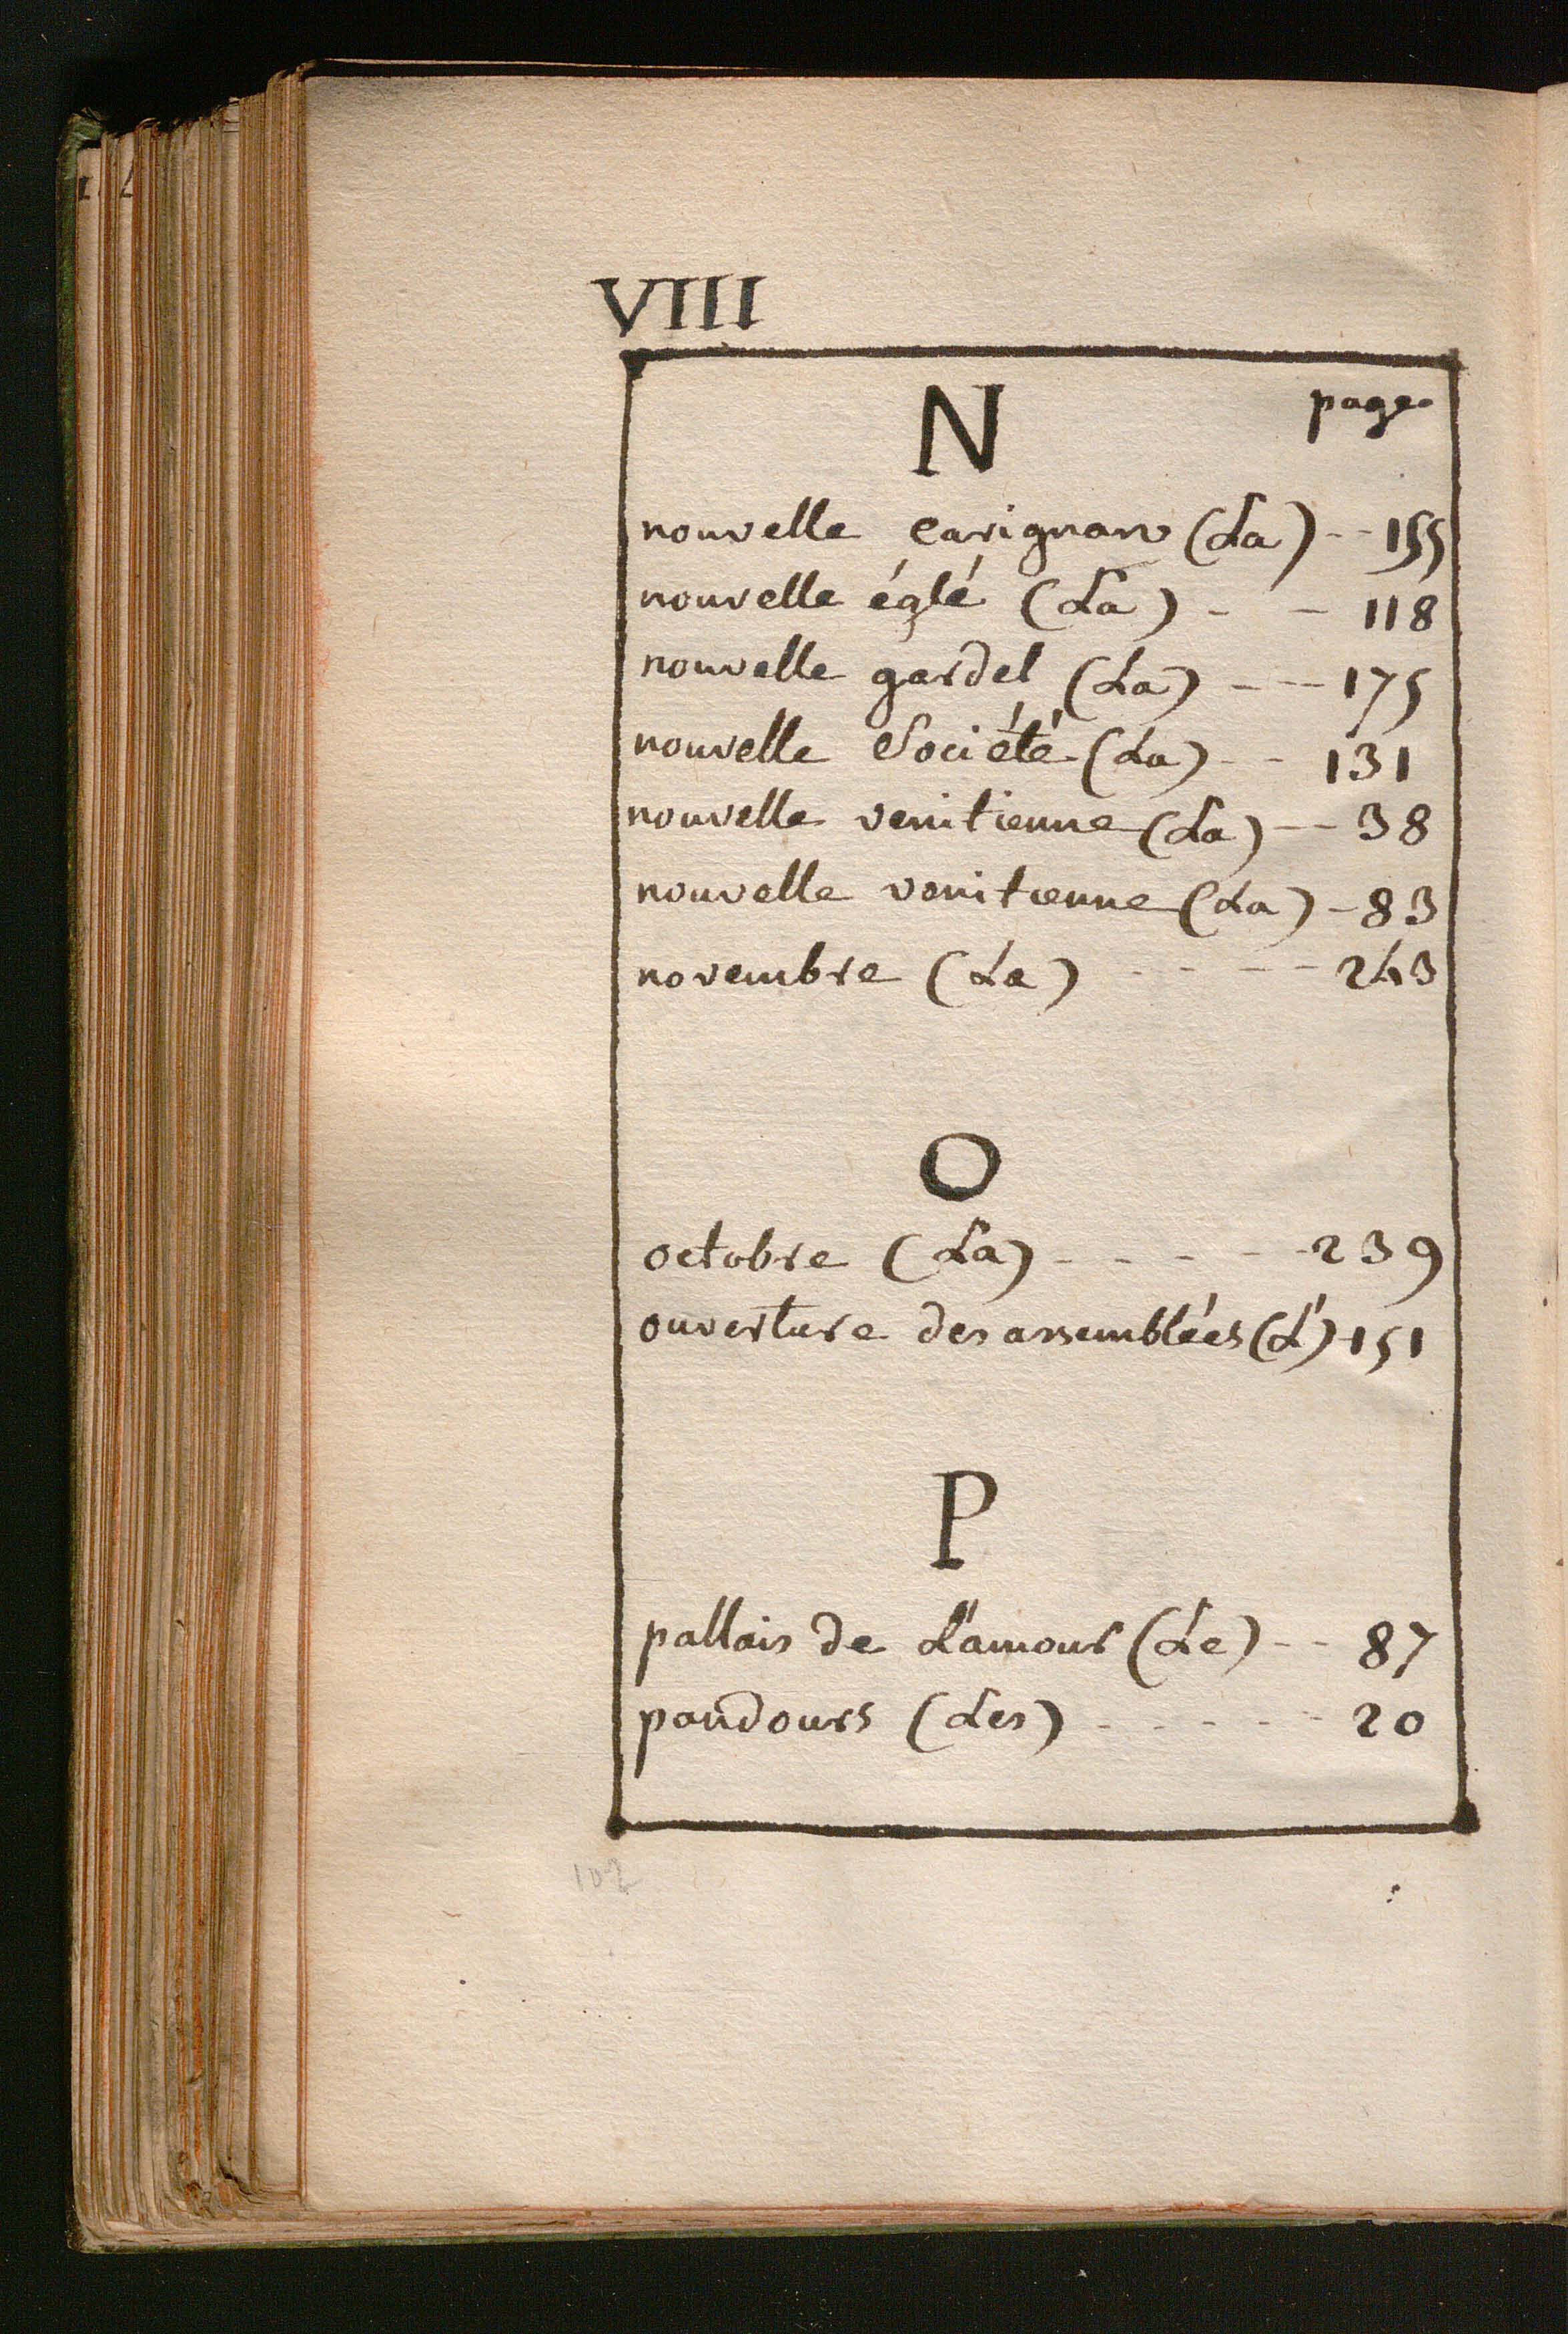 VIII
N page
nouvelle carignan (La) -- 155
nouvelle églé (La) - - 118
nouvelle gardel (La) --- 175
nouvelle Société (La) -- 131
nouvelle venitienne (La) -- 38
nouvelle venitienne (La) - 83
novembre (La) ---- 243
O
octobre (La) ----- 239
ouverture des assemblées (L') 151
P
pallais de L'amour (Le) -- 87
pandours (Les) ------ 20
102